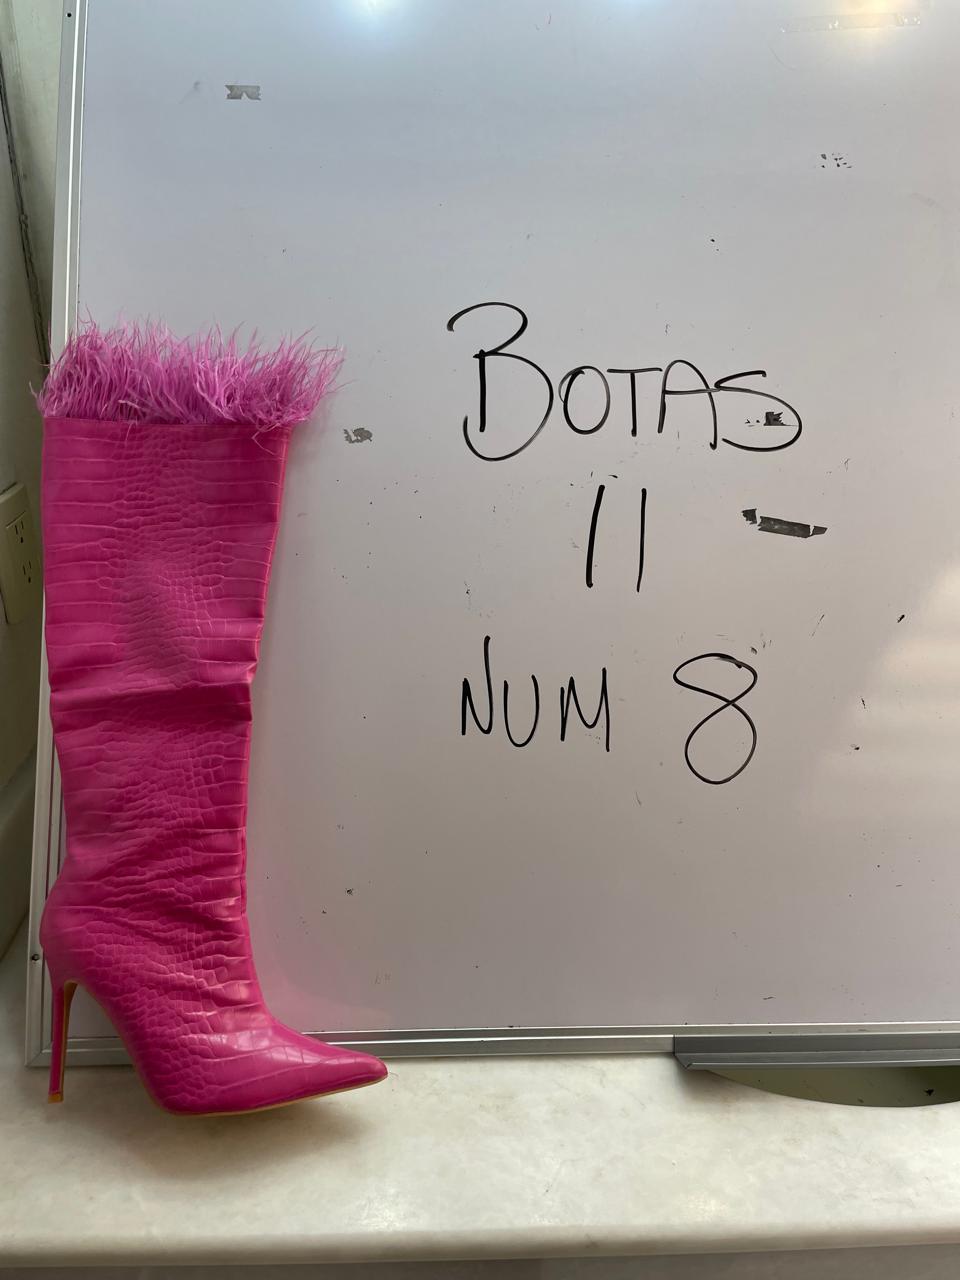 BOTAS
11
NUM 8